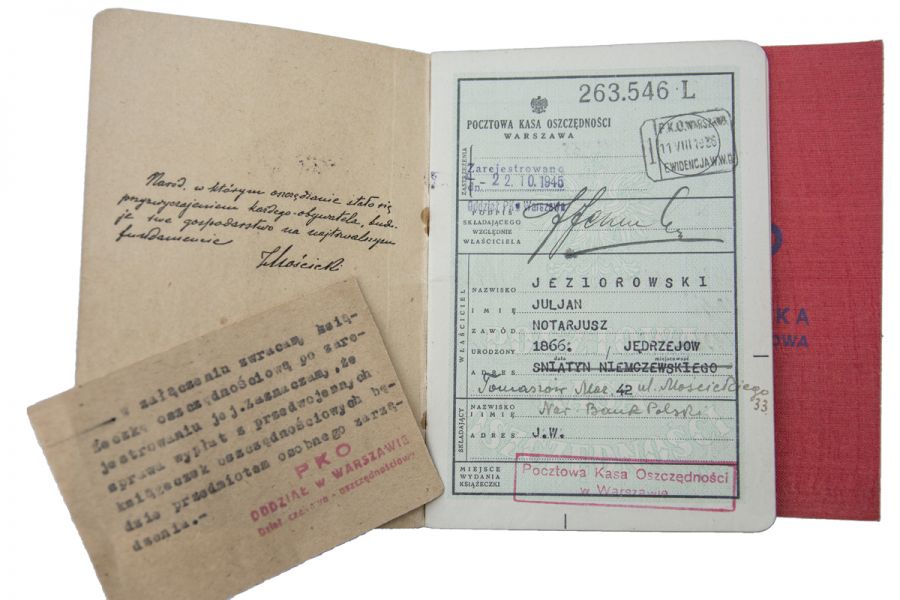 Naród, w którym oszczędzanie stało się
przyzwyczajeniem każdego obywatela, budu-
je swe gospodarstwo na najtrwalszym
fundamencie
I Mościcki
W załączeniu zwracam ksią-
żeczkę oszczędnościową po zare-
jestrowaniu jej. Zaznaczam, że
sprawa wypłat z przedwojennych
książeczek oszczędnościowych bę-
dzie przedmiotem osobnego zarzą-
dzenia.-
PKO
ODDZIAŁ W WARSZAWIE
Dział czekowo - oszczędnościowy
263.546 L
POCZTOWA KASA OSZCZĘDNOŚCI
WARSZAWA
P.K.O. WARSZAWA
1
11 VIII 1936
EWIDENCJA W.W.G
ZASTRZEŻENIA
Zarejestrowano
dn. - 22.10.1945
Oddział PKO Warszawa
PODPIS
SKŁADAJĄCEGO
WZGLĘDNIE
WŁAŚCICIELA
WŁAŚCICIEL
NAZWISKO JEZIOROWSKI
IMIĘ JULJAN
ZAWÓD NOTARJUSZ
URODZONY 1866. / JĘDRZEJOW
data miejscowość
ADRES SNIATYN NIEMCZEWSKIEGO
Tomaszów Maz. 42 ul. Mościckiego
33
SKŁADAJĄCY
NAZWISKO
I IMIĘ Nar. Bank Polski
ADRES J.W.
MIEJSCE
WYDANIA
KSIĄŻECZKI
Pocztowa Kasa Oszczędności
w Warszawie